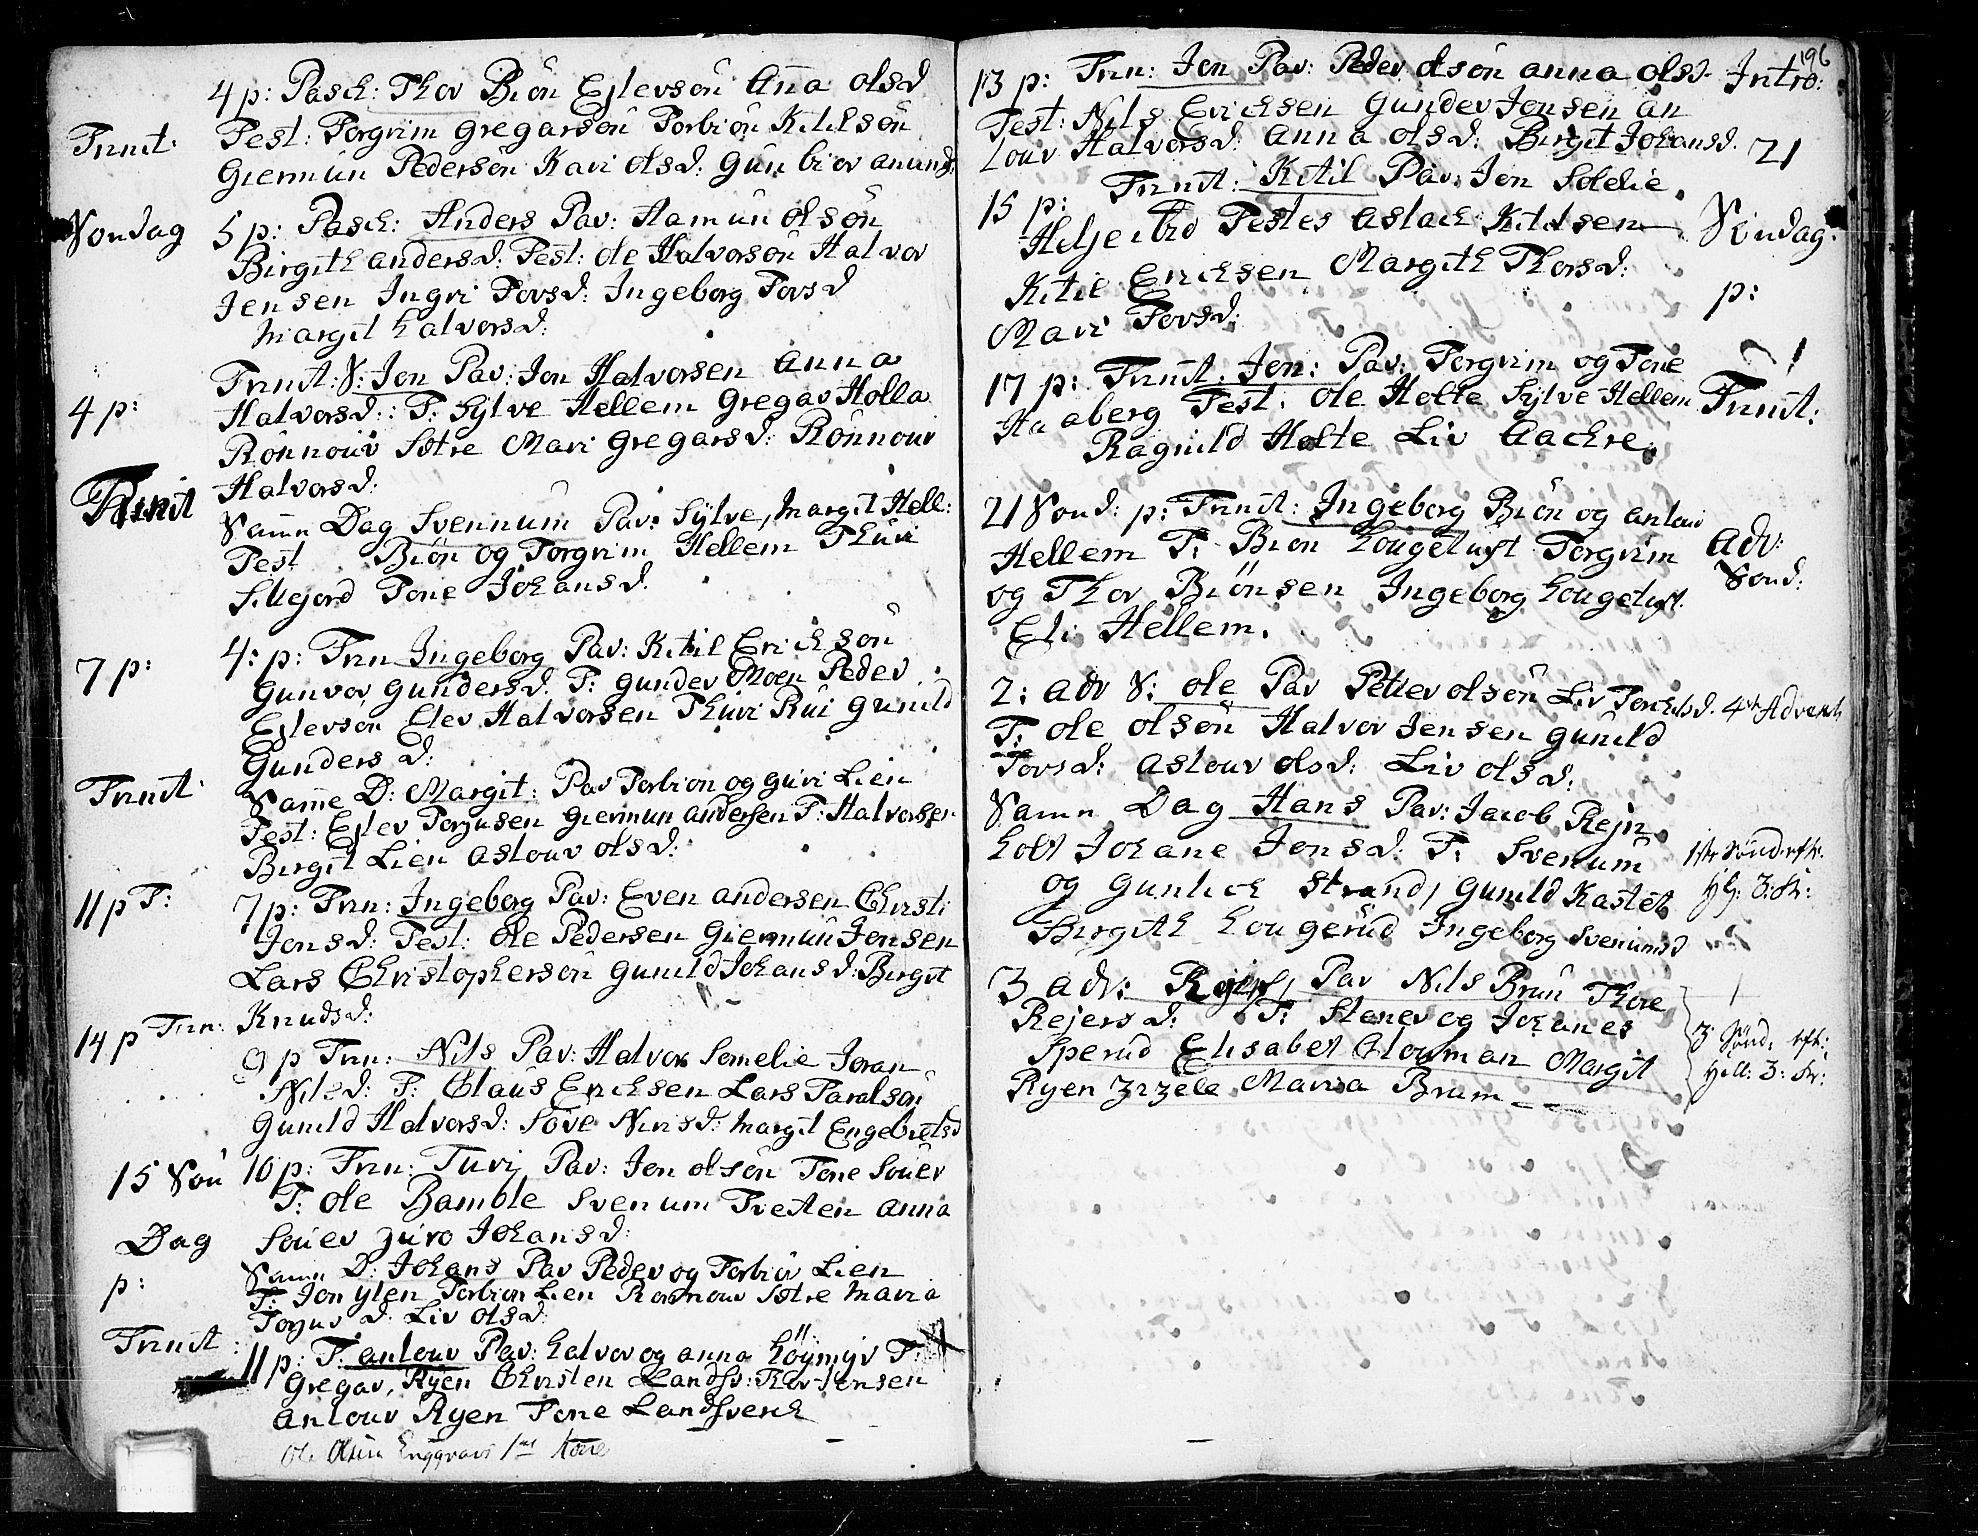 4 p: Pasch: Thor Biön Eylevsön Anna olsd
Trinit: Test: Torgrim gregarsön Torbiön Kitelsön
giermün Pedersön Kari olsd: gün biör amunds
Söndag 5 p: Pasch: Anders Pav: Aamün olsön
Birgith andersd: Test: ole Halvorsön Halvor
Jensen Ingri Torsd: Ingeborg Torsd
Margit halvorsd:
Trinit: S: Jon Pav: Jon Halvorsen Anna
4 p: Halvorsd: T: Sylve Hellem gregar Holla
Rönnouv Sötre Mari gregarsd: Rönnouv
Trinit Halvorsd:
Samn Dag Svennum Pav: Sylve, Margit Hell:
Test Biön og Torgrim Hellem Thüri
Sillejord Tone Johansd.
7 p: 4: p: Trin Ingeborg Pav: Kitil Erichsön
Gunvor gundersd. T: gunder Moen Peder
Eylevsön Elev Halvorsen Thüri Rüi gunild
Gundersd:
Trinit: Samme D: Margit: Pav Torbion og güri Lien
Test: Eylev Torjusen giermun andersen T: Halvorsen
Birgit Lien aslouv olsd:
11 p T: 7 p: Trin: Ingeborg Pav: Even andersen Christi
Jonsd: Test: ole Pedersen giermün Jonsen
Lars Christophersön gunild Johansd: Birgit
14 p Trin: Knudsd:
9 p Trin: Nils Pav: Halvor Semelie Joran
Nilsd: T: Claüs Erichsen Lars Paralsön
Gunild Halvorsd: Söve Nirisd: Margit Engebretsd
15 Sön 10 p: Trin: Turij Pav: Jon olsön Tone Soüer
T: ole Bamble Svenum Tveten Anna
Dag Soüer jüro Johansd:
p: Samn D: Johans Pav Peder og Torbiör Lien
T: Jon ylen Torbion Lien Ronnouv Sötre Maria
Torjusd: Liv olsd:
Trinit: 11 p: T: anlouv Pav: halvor og anna höymyr T:
Gregar, Ryen Christen Landsv: Thor Jonsen
Anlouv Ryen Tone Landsverch
Ole Olsen Enggravs 1ste Kone
196
13 p: Trin: Jon Pav: Peder olsön anna olsd. Intro:
Test: Nils Erichsen Gunder Jonsen an
Louv Halvorsd: Anna olsd: Birgit Johansd. 21
15 p: Trinit: Kitil Pav: Jon Soldie
Heljerød Testes Aslach Kitelsen Söndag:
Kitil Erichsen Margith Thorsd: p:
Mari Torsd:
17 p: Trinit: Jon: Pav: Torgrim og Tone
Haaberg Test: ole Holte Sylve Hellem Trinit:
Ragnild Holte Liv Aachre.
21 Sond: p: Trinit: Ingeborg Biön og anlouv
Hellem T: Bion hougetuft Torgrim Adv:
og Thor Biönsen Ingeborg hougetuft. Sond:
Eli Hellem.
2: adv S: ole Pav Petter olsön Liv Torchelsd. 4de Advent
T: ole olsön Halvor Jensen gunild
Torsd: aslouv olsd: Liv olsd:
Samn Dag Hans Pav: Jacob Rejn
holt Johane Jonsd: T: Svenum 1ste Sönd: eft:
og gunlech strand, gunild Kastet Hl: 3: Kr:
Birgith hougerüd Ingeborg Svenumsd
3 adv: Rejer, Pav Nils Brun Thore
Rejersd: T: Stener og Johanes 3 Sönd: eft:
Sperüd Elisabet Clouman Margit Hell: 3: Kr:
Ryen Zizele Maria Brum